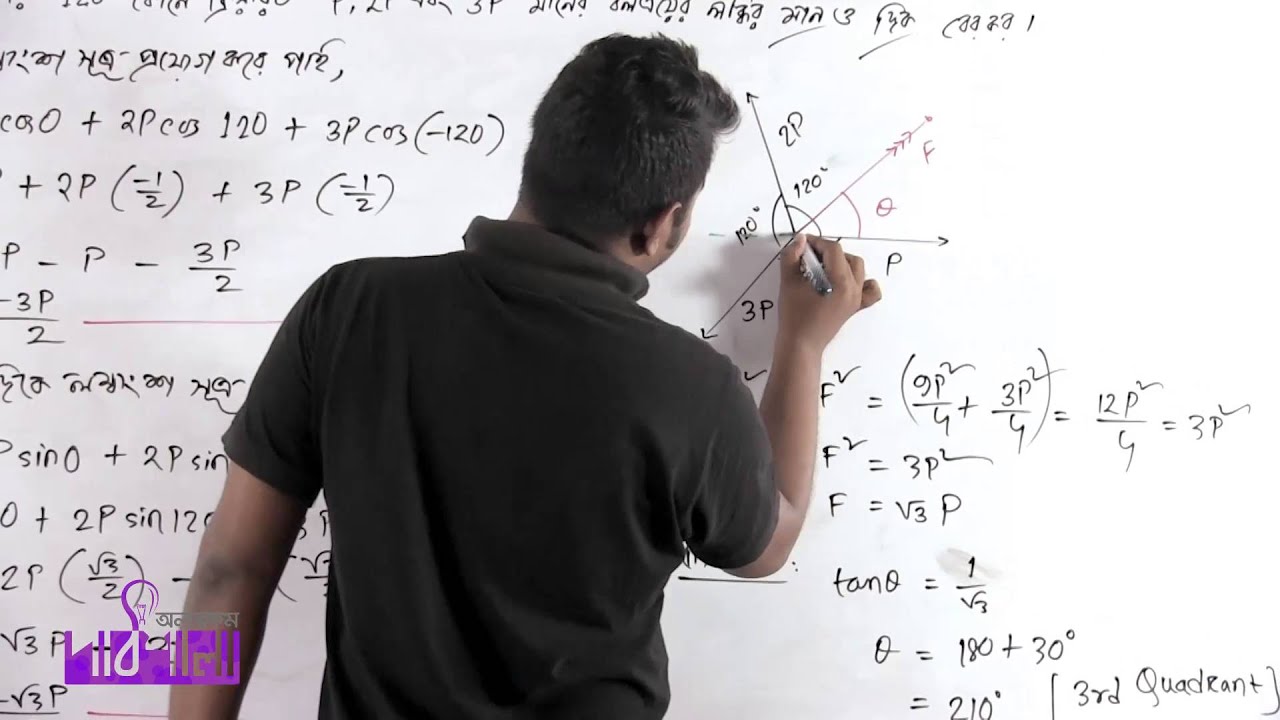 120 কোণে ক্রিয়ারত P, 2P এবং 3P মানের বলত্রয়ের লব্ধির মান ও দিক বের কর।
সূত্র প্রয়োগ করে পাই,
cos0 + 2Pcos 120 + 3Pcos(-120)
+ 2P (-1/2) + 3P (-1/2)
P - P - 3P/2
-3P/2
দিকে লম্বাংশ সূত্র
P sin0 + 2P sin
0 + 2P sin 120
2P (√3/2) -
√3 P -
-√3P
2P
120°
120°
F
θ
P
3P
F² = (9P²/4 + 3P²/4) = 12P²/4 = 3P²
F² = 3P²
F = √3 P
tanθ = 1/√3
θ = 180 + 30°
= 210° [3rd Quadrant]
অন্যরকম
পাঠশালা